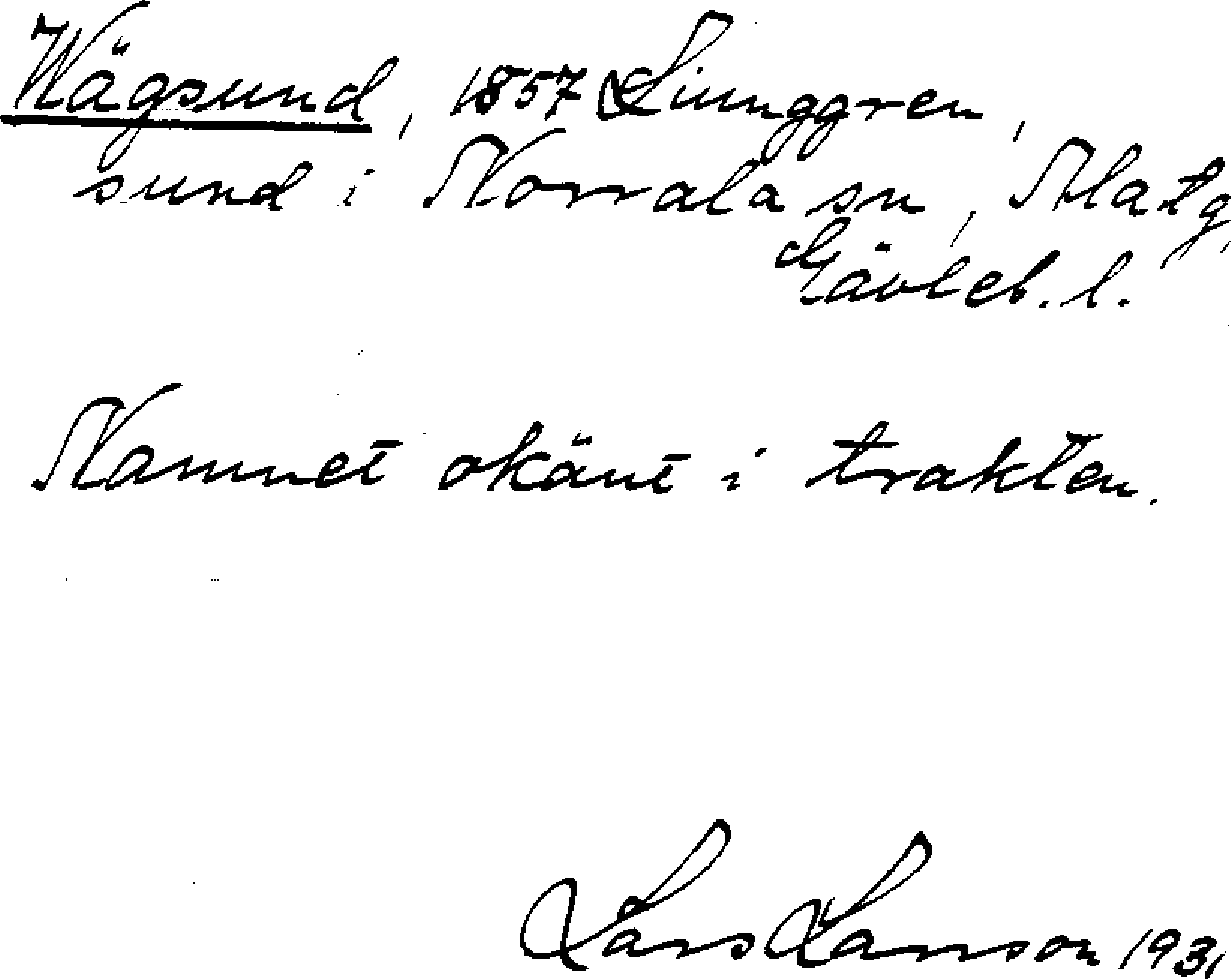 Wägsund, 1857 Liunggren,
sund i Norrala sn, Ala tg,
Gävleb. l.
Namnet okänt i trakten.
Lars Larsson 1931